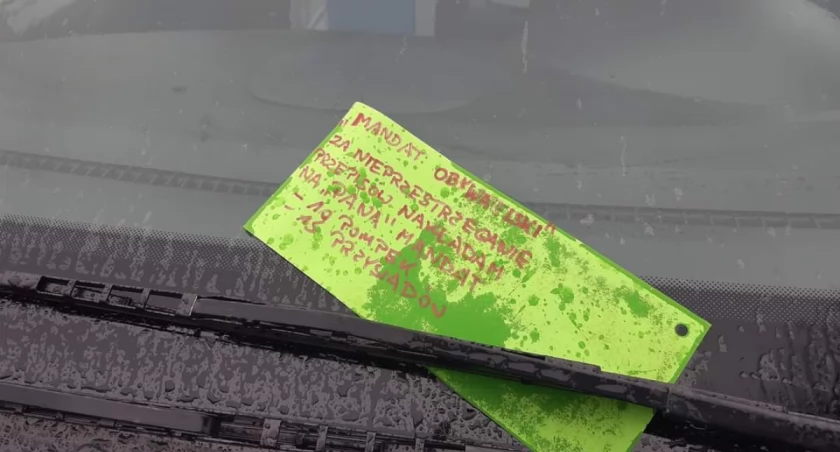 "MANDAT OBYWATELSKI"
ZA NIEPRZESTRZEGANIE
PRZEPISÓW NAKŁADAM
NA „PANA" MANDAT
- 19 POMPEK
- 15 PRZYSIADÓW